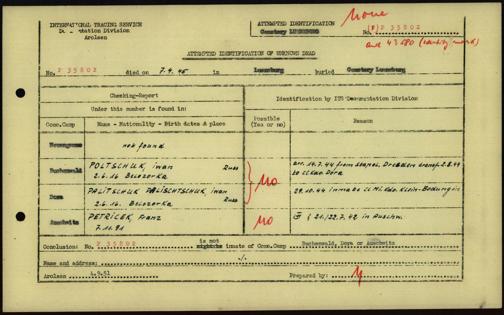 INTERNATIONAL TRACING SERVICE
Documentation Division
Arolsen
ATTEMPTED IDENTIFICATION
Cemetery LUNEBURG
None
No. (P) P 35802
and 43580 (identity mark)
ATTEMPTED IDENTIFICATION OF UNKNOWN DEAD
No. P 35802 died on 7.4.45 in Luneburg buried Cemetery Luneburg
Checking-Report
Under this number is found in:
Identification by ITS Documentation Division
Conc.Camp
Name - Nationality - Birth date & place
Possible (Yes or no)
Reason
Neuengamme
not found
Buchenwald
POLTSCHUK, Iwan Russ
2.6.16. Beiozerka
no
arr. 14.7.44 from Stapol. Dresden transf. 2.8.44
to CC Kdo Dora
Dora
PALITSCHUK POLISCHTSCHUK, Iwan Russ
2.6.16. Beiozerka
29.10.44 inmate CC Mi. Kdo. Klein-Bodungen
Auschwitz
PETRICEK, Franz
7.11.91
no
21./22.7.42 in Auschw.
Conclusion: No. P 35802 is not inmate of Conc.Camp Buchenwald, Dora or Auschwitz
Name and address: -/-
Arolsen 4.9.51
Prepared by: